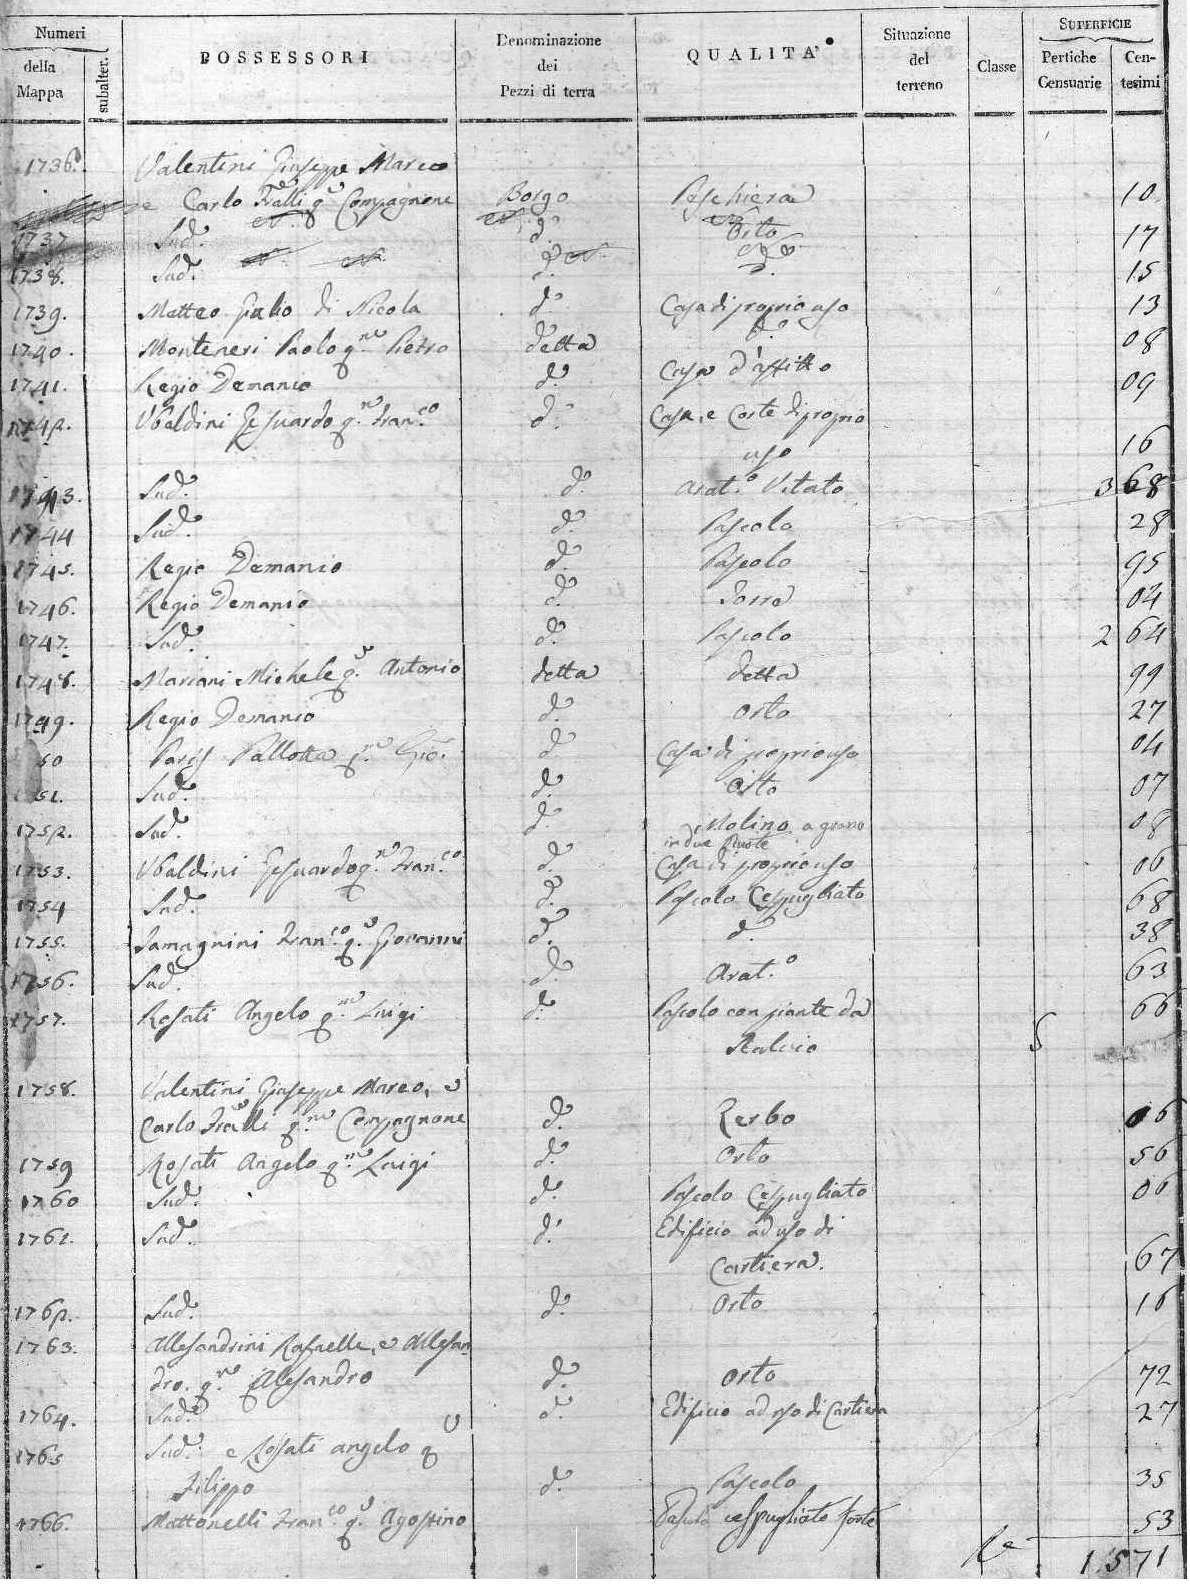 Numeri
della Mappa
subalter.
POSSESSORI
Denominazione dei Pezzi di terra
QUALITA'
Situazione del terreno
Classe
SUPERFICIE
Pertiche Censuarie
Centesimi
1736. Valentini Giuseppe Marco
e Carlo Fralli q.m Compagnone Borgo Peschiera 10
1737 Sud.o d.o Orto 17
1738. Sud.o d.o d.o 15
1739. Matteo Giulio di Nicola d.o Casa di proprio uso 13
1740. Monteneri Paolo q.m Pietro detta d.o 08
1741. Regio Demanio d.o Casa d'affitto 09
1742. Ubaldini Gesuardo q.m Fran.co d.o Casa, e Corte di proprio
uso 16
1743. Sud.o d.o Arat.o Vitato 3 68
1744 Sud.o d.o Pascolo 28
1745. Regio Demanio d.o Pascolo 95
1746. Regio Demanio d.o 04
1747. Sud.o d.o Pascolo 2 64
1748. Mariani Michele q.m Antonio detta detta 99
1749. Regio Demanio d.o Orto 27
50 Pallotta q.m Gio. d.o Casa di proprio uso 04
51. Sud.o d.o Orto 07
1752. Sud.o d.o Molino a grano
in due Ruote 08
1753. Ubaldini Gesuardo q.m Fran.co d.o Casa di proprio uso 06
1754 Sud.o d.o Pascolo Cespugliato 68
1755. Samagnini Fran.co q.m Giovanni d.o d.o 38
1756. Sud.o d.o Arat.o 63
1757. Rosati Angelo q.m Luigi d.o Pascolo con piante da 66
5
1758. Valentini Giuseppe Marco, e
Carlo Fralli q.m Compagnone d.o Zerbo 06
1759 Rosati Angelo q.m Luigi d.o Orto 56
1760 Sud.o d.o Pascolo Cespugliato 06
1761. Sud.o d.o Edificio ad uso di
Cartiera. 67
1762. Sud.o d.o Orto 16
1763. Allesandrini Rafaelle, e Allesan
dro. q.m Alesandro d.o Orto 72
1764. Sud.o d.o Edificio ad uso di Cartiera 27
1765 Sud.o e Rosati angelo q
Filippo d.o Pascolo 35
1766. Mattonelli Fran.co q.m Agostino Pascolo cespugliato forte 53
1 571